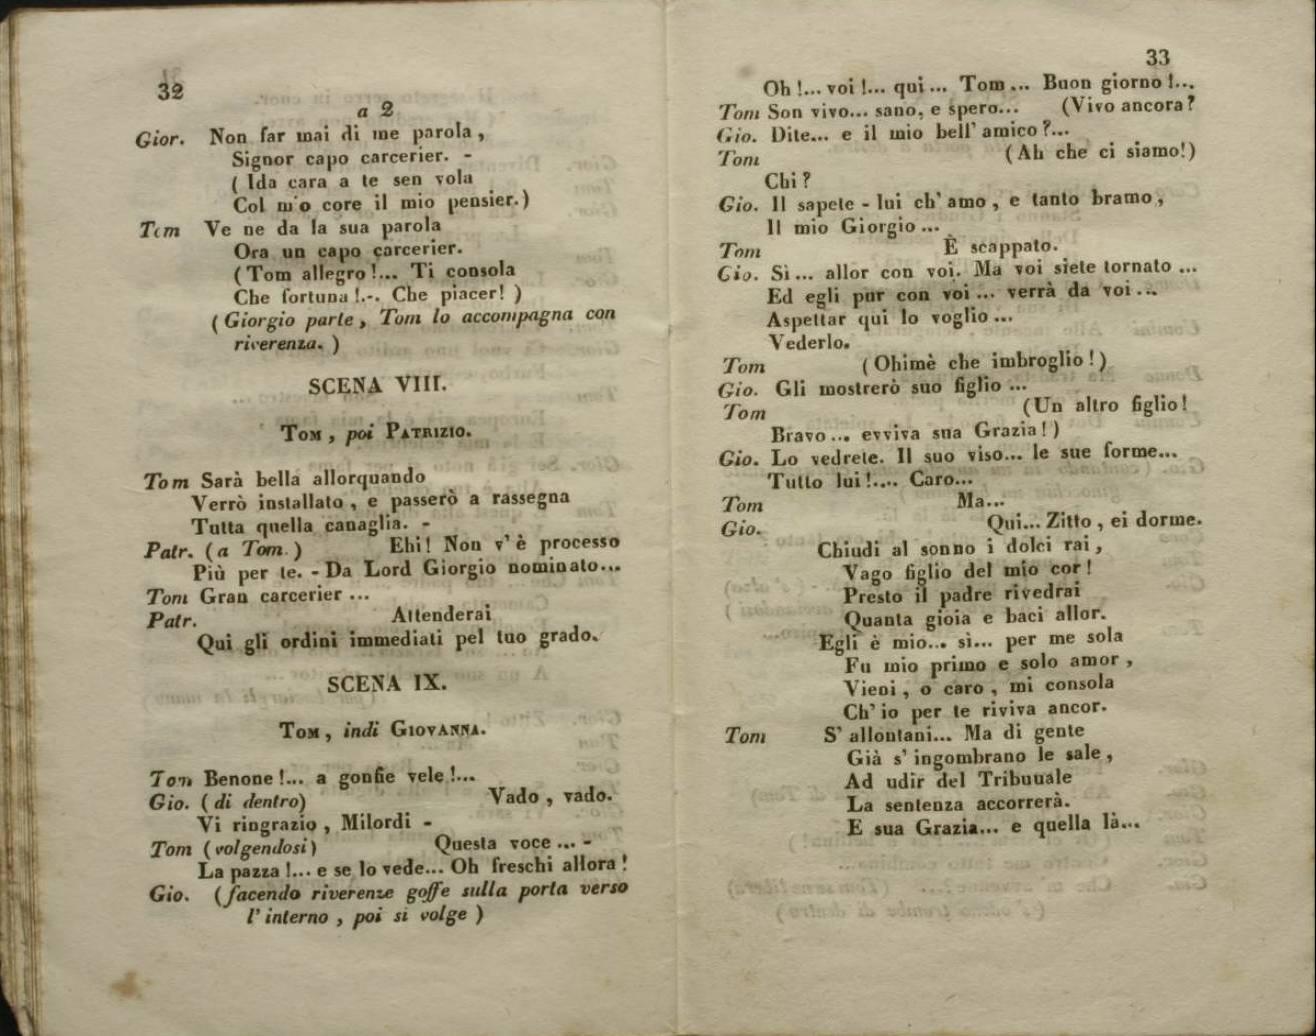 32
a 2
Gior. Non far mai di me parola,
Signor capo carcerier. -
( Ida cara a te sen vola
Col mio core il mio pensier.)
Tom Ve ne da la sua parola
Ora un capo carcerier.
( Tom allegro!... Ti consola
Che fortuna!... Che piacer! )
( Giorgio parte, Tom lo accompagna con
riverenza. )
SCENA VIII.
TOM, poi PATRIZIO.
Tom Sarà bella allorquando
Verrò installato, e passerò a rassegna
Tutta quella canaglia. -
Patr. ( a Tom ) Ehi! Non v'è processo
Più per te. - Da Lord Giorgio nominato...
Tom Gran carcerier ...
Patr. Attenderai
Qui gli ordini immediati pel tuo grado.
SCENA IX.
TOM, indi GIOVANNA.
Tom Benone!... a gonfie vele!...
Gio. ( di dentro) Vado, vado.
Vi ringrazio, Milordi -
Tom ( volgendosi ) Questa voce ... -
La pazza!... e se lo vede... Oh freschi allora!
Gio. ( facendo riverenze goffe sulla porta verso
l'interno, poi si volge )
33
Oh!... voi!... qui... Tom... Buon giorno!...
Tom Son vivo... sano, e spero... (Vivo ancora?
Gio. Dite... e il mio bell'amico?...
Tom (Ah che ci siamo!)
Chi?
Gio. Il sapete - lui ch'amo, e tanto bramo,
Il mio Giorgio ...
Tom È scappato.
Gio. Sì... allor con voi. Ma voi siete tornato ...
Ed egli pur con voi ... verrà da voi...
Aspettar qui lo voglio ...
Vederlo.
Tom ( Ohimè che imbroglio!)
Gio. Gli mostrerò suo figlio ...
Tom (Un altro figlio!
Bravo... evviva sua Grazia!)
Gio. Lo vedrete. Il suo viso... le sue forme...
Tutto lui!.... Caro...
Tom Ma...
Gio. Qui... Zitto, ei dorme.
Chiudi al sonno i dolci rai,
Vago figlio del mio cor!
Presto il padre rivedrai
Quanta gioia e baci allor.
Egli è mio... sì... per me sola
Fu mio primo e solo amor,
Vieni, o caro, mi consola
Ch'io per te riviva ancor.
Tom S'allontani... Ma di gente
Già s'ingombrano le sale,
Ad udir del Tribunale
La sentenza accorrerà.
E sua Grazia... e quella là...